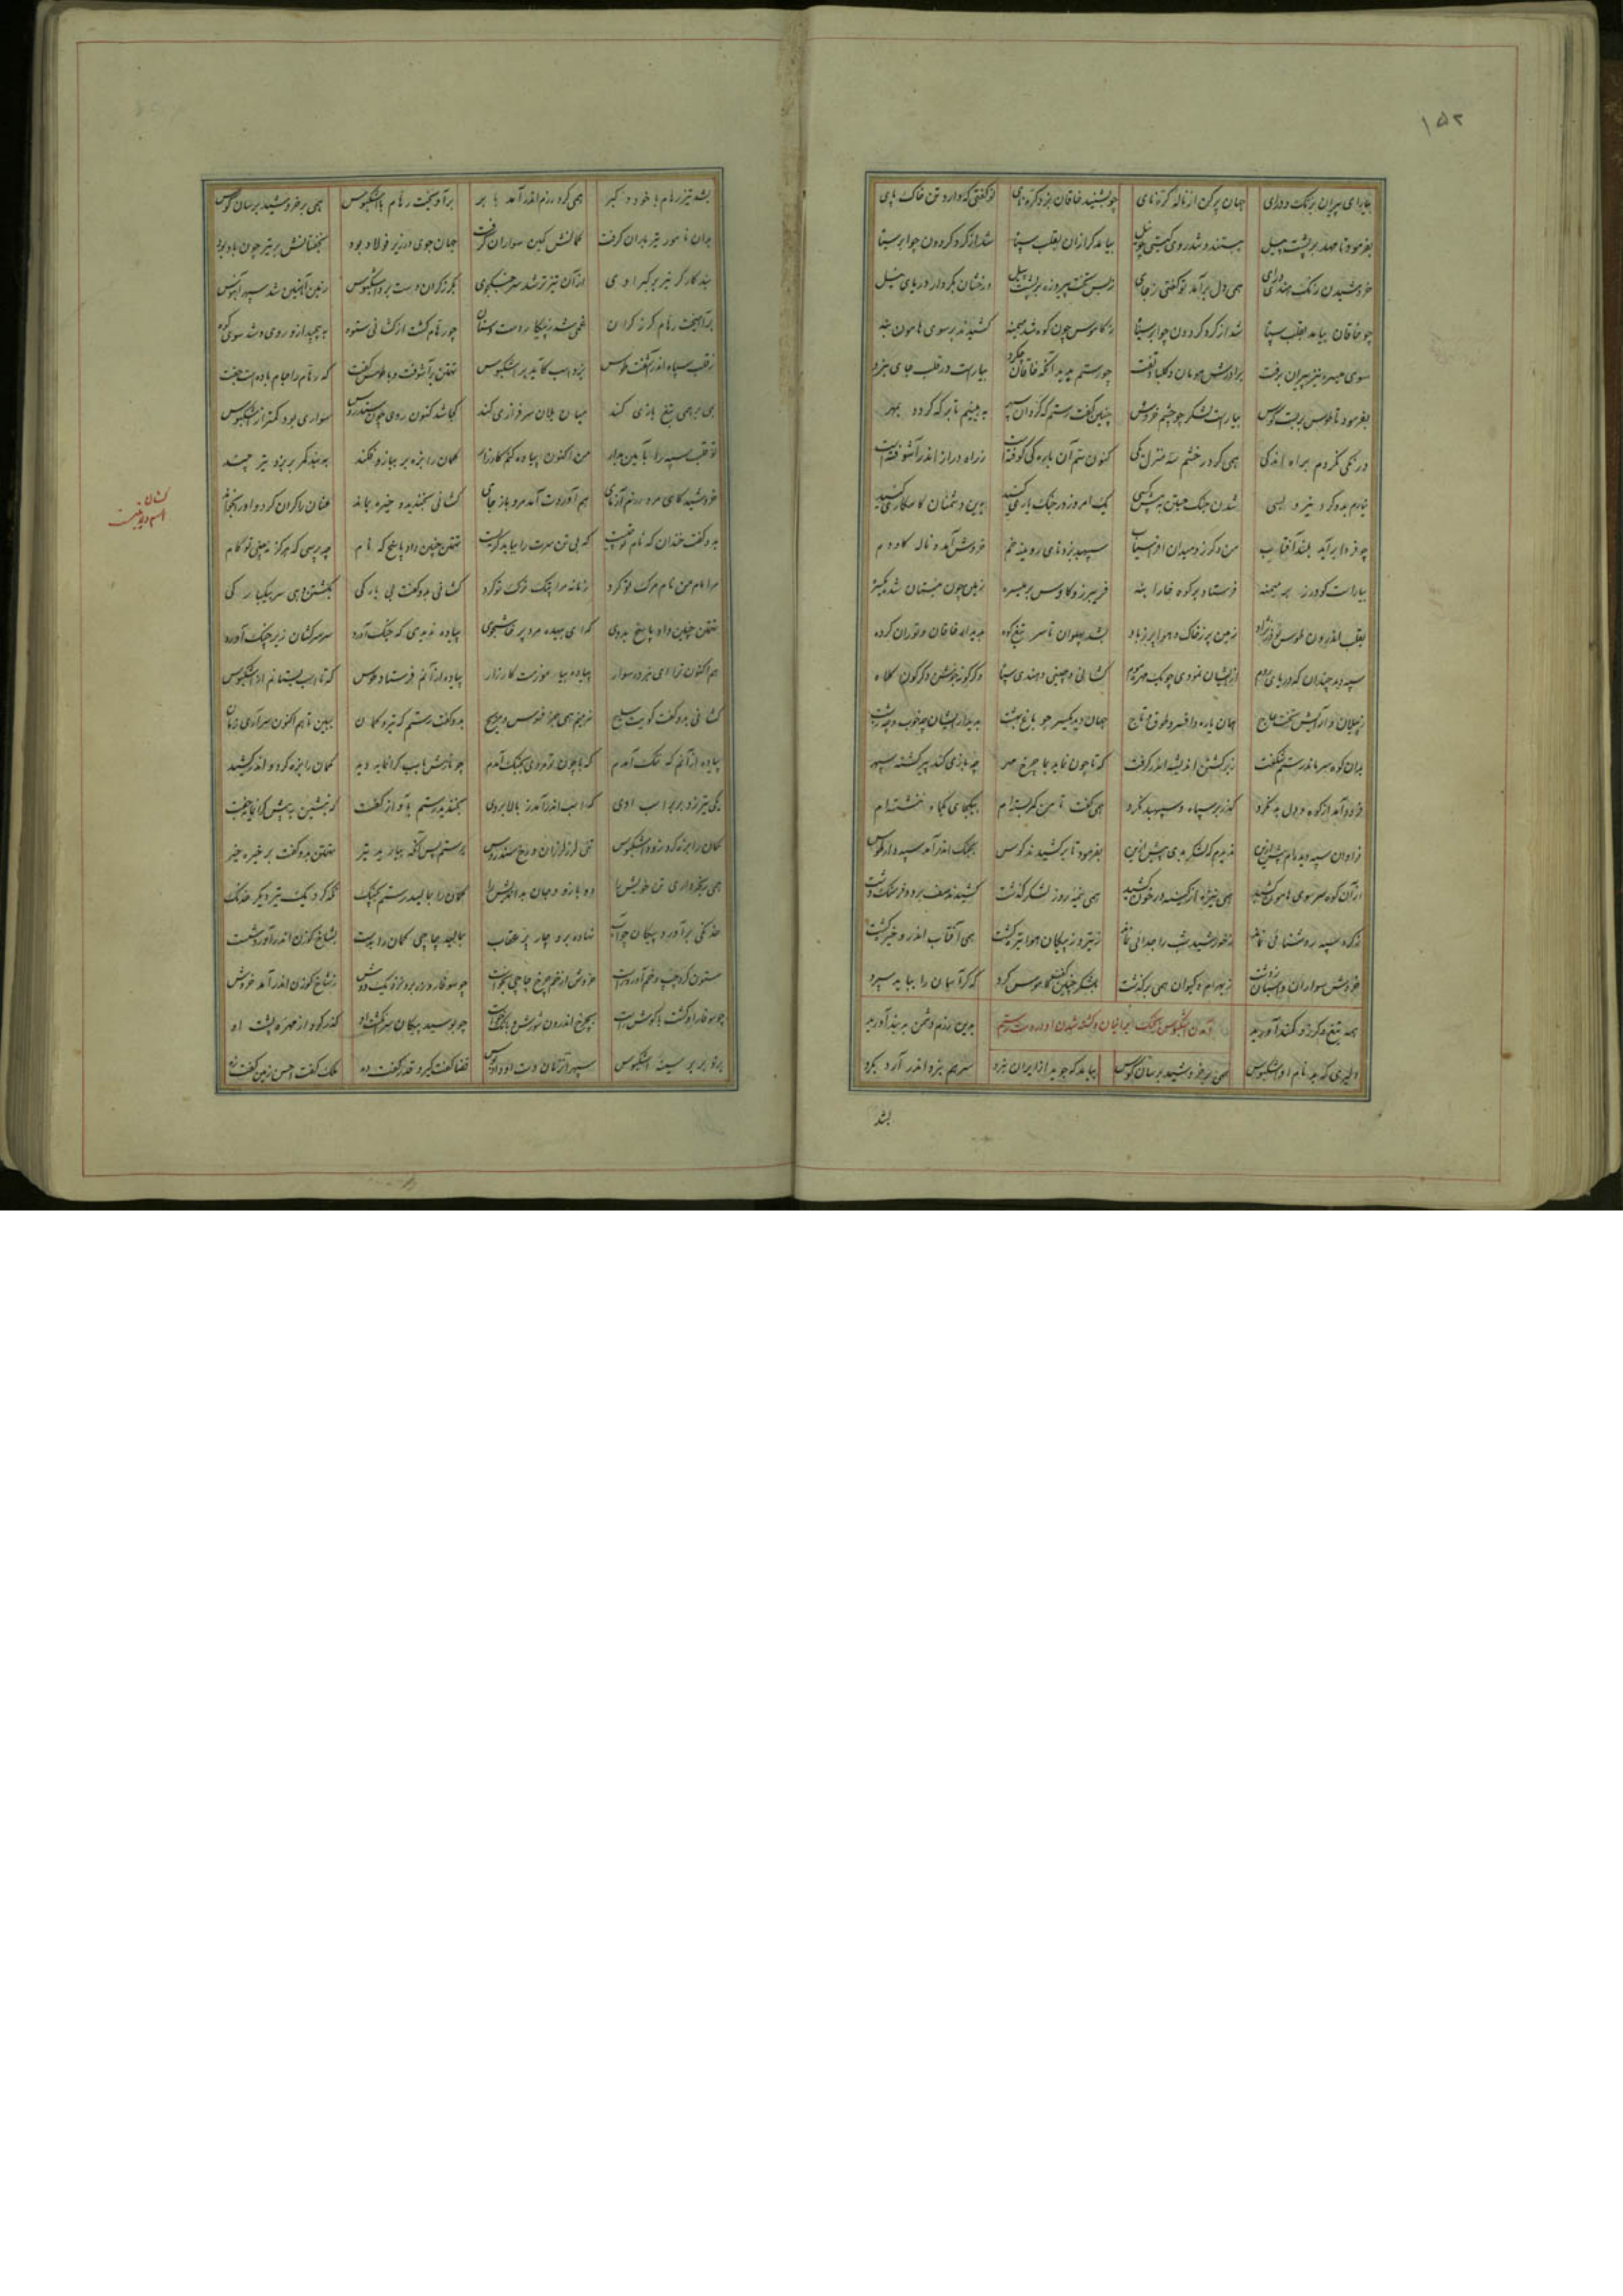 ۱۵۲
بیارای پیران بزنگ و درای جهان پر کن از ناله کرنای چو بشنید خاقان بزد کرنای تو گفتی که دارد تن خاک پای
بفرمود تا مهد بر پشت پیل ببستند و شد روی گیتی چو نیل بیامد گرازان بقلب سپاه شد از گرد گردون چو ابر سیاه
خروشیدن زنگ هندی درای همی دل برآمد تو گفتی ز جای ز بس تخت پیروزه بر پشت پیل درخشان بکردار دریای نیل
چو خاقان بیامد بقلب سپاه شد از گرد گردون چو ابر سیاه ز کاموس چون کوه شد میمنه کشیدند بر سوی هامون بنه
سوی میسره نیز پیران برفت برادرش هومان و کلباد تفت چو رستم بدید آنکه خاقان چه کرد بیاراست در قلب جای نبرد
بفرمود تا طوس بر بست کوس بیاراست لشکر چو چشم خروس چنین گفت رستم که گردان سپهر به بینیم تا بر که گردد بمهر
درنگی نکردم براه اندکی همی کرد رخشم سه منزل یکی کنون سم آن باره کی کوفته است ز راه دراز اندر آشوفته است
نیارم بدو کرد نیرو بسی شدن جنگ جستن به پیش کسی یک امروز در جنگ یاری کنید برین دشمنان کامکاری کنید
چو فردا برآید بلند آفتاب من و گرز و میدان افراسیاب سپهبد بزد نای رویینه خم خروش آمد و ناله گاودم
بیاراست گودرز بر میمنه فرستاد بر کوه خارا بنه فریبرز کاوس بر میسره زمین چون نیستان شد یکسره
بقلب اندرون طوس نوذر نژاد زمین پر ز خاک و هوا پر ز باد بشد پهلوان تا سر تیغ کوه بدیدار خاقان و توران گروه
سپه دید چندان که دریای روم ازیشان نمودی چو یک مهره موم کشانی و چینی و هندی سپاه دگرگونه جوشن دگرگون کلاه
ز پیلان و آرایش تخت عاج همان یاره و افسر و طوق و تاج جهان دید یکسر چو باغ بهشت بدیدار ایشان چه خوب و چه زشت
بدان کوه سر ماند رستم شگفت ز برگشتن اندیشه اندر گرفت که تا چون نماید بما چرخ مهر چه بازی کند پیر گشته سپهر
فرود آمد از کوه و دل بد نکرد گذر بر سپاه و سپهبد نکرد همی گفت تا من کمر بسته‌ام بیکجای یکماه ننشسته‌ام
فراوان سپه دیدم پیش ازین ندیدم که لشکر بدی بیش ازین بفرمود تا بر کشیدند کوس بجنگ اندر آمد سپهدار طوس
از آن کوه سر سوی هامون کشید همی نیزه از کینه در خون کشید همی نیمه روز لشکر گذشت کشیدند صف بر دو فرسنگ دشت
ز گرد سپه روشنائی نماند ز خورشید شب را جدائی نماند ز تیر و ز پیکان هوا تیره گشت همی آفتاب اندرو خیره گشت
خروش سواران و اسبان ز دشت ز بهرام و کیوان همی برگذشت بلشکر چنین گفت کاموس گرد که گر آسمان را بباید سپرد
همه تیغ و گرز و کمند آورید آمدن اشکبوس بجنگ ایرانیان و کشته شدن او بر دست رستم برین رزم دشمن به بند آورید
دلیری که بد نام او اشکبوس همی بر خروشید بر سان کوس بیامد که جوید از ایران نبرد سر هم نبرد اندر آرد بگرد
بشد
بشد تیز رهام با خود و گبر همی گرد رزم اندر آمد با بر برآویخت رهام با اشکبوس همی بر خروشید بر سان کوس
بدان نامور تیر باران گرفت کمانش کمین سواران گرفت جهان جوی در زیر فولاد بود بخفتانش بر تیر چون باد بود
نبد کارگر تیر بر گبر اوی از آن تیزتر شد سر جنگجوی بگرز گران دست برد اشکبوس زمین آهنین شد سپهر آبنوس
برآهیخت رهام گرز گران غمی شد ز پیکار دست سران چو رهام گشت از کشانی ستوه به پیچید ازو روی و شد سوی کوه
ز قلب سپاه اندر آشفت طوس بزد اسب کاید بر اشکبوس تهمتن برآشفت و با طوس گفت که رهام را جام باده است جفت
بمی بر همی تیغ بازی کند میان یلان سرفرازی کند کجا شد کنون روی چون سندروس سواری بود کمتر از اشکبوس
تو قلب سپه را بآیین بدار من اکنون پیاده کنم کارزار کمان را بزه بر ببازو فکند به بند کمر بر بزد تیر چند
خروشید کای مرد رزم آزمای هم آوردت آمد مرو باز جای کشانی بخندید و خیره بماند عنان را گران کرد و او را بخواند
بدو گفت خندان که نام تو چیست که بی تن سرت را بباید گریست تهمتن چنین داد پاسخ که نام چه پرسی که هرگز نبینی تو کام
مرا مام من نام مرگ تو کرد زمانه مرا پتک ترگ تو کرد کشانی بدو گفت بی بارگی بکشتن دهی سر بیکبارگی
تهمتن چنین داد پاسخ بدوی که ای بیهده مرد پرخاشجوی پیاده ندیدی که جنگ آورد سر سرکشان زیر چنگ آورد
هم اکنون ترا ای نبرده سوار پیاده بیاموزمت کارزار پیاده از آنم فرستاد طوس که تا اسب بستانم از اشکبوس
کشانی بدو گفت کویت سلیح نه بینم همی جز فسوس و مزیح بدو گفت رستم که تیر و کمان ببین تا هم اکنون سر آری زمان
پیاده از آنم که تنگ آمدم که با چون تو مردی بجنگ آمدم چو نازش باسب گرانمایه دید کمان را بزه کرد و اندر کشید
یکی تیر زد بر بر اسب اوی که اسب اندر آمد ز بالا بروی بخندید رستم بآواز گفت که بنشین به پیش گرانمایه جفت
کمان را بزه کرد زود اشکبوس تنی لرز لرزان و رخ سندروس برستم پس آنگه ببارید تیر تهمتن بدو گفت بر خیره خیر
همی رنجه داری تن خویش را دو بازو و جان بداندیش را کمان را بمالید رستم بچنگ نگه کرد یک تیر دیگر خدنگ
خدنگی برآورد پیکان چو آب نهاده برو چار پر عقاب بمالید چاچی کمان را بدست بشاخ گوزن اندر آورد شست
ستون کرد چپ و خم آورد راست خروش از خم چرخ چاچی بخاست چو سوفارش آمد بنزدیک گوش ز شاخ گوزن اندر آمد خروش
چو بوسید پیکان سر انگشت او گذر کرد از مهره پشت او
بزد بر بر سینه اشکبوس سپهر آن زمان دست او داد بوس قضا گفت گیر و قدر گفت ده ملک گفت احسن زمین گفت زه